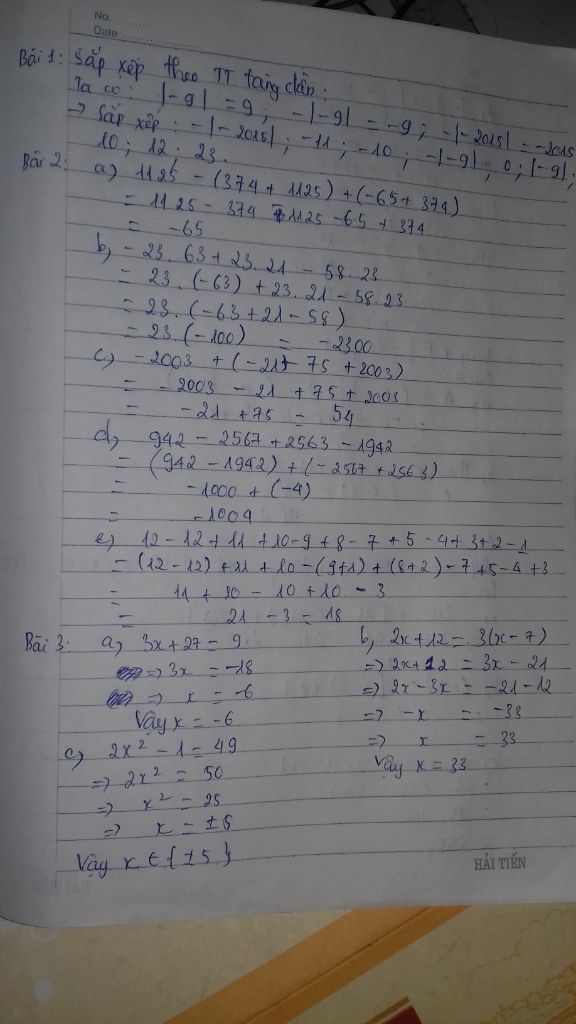 No.
Date
Bài 1: Sắp xếp theo TT tăng dần:
Ta có: |-9| = 9 ; -|-9| = -9 ; -|-2015| = -2015
→ Sắp xếp : -|-2015| ; -11 ; -10 ; -|-9| ; 0 ; |-9| ;
10 ; 12 ; 23.
Bài 2: a) 1125 - (374 + 1125) + (-65 + 374)
= 1125 - 374 - 1125 - 65 + 374
= -65
b) -23. 63 + 23. 21 - 58. 23
= 23. (-63) + 23. 21 - 58. 23
= 23. (-63 + 21 - 58)
= 23. (-100) = -2300
c) -2003 + (-21 + 75 + 2003)
= -2003 - 21 + 75 + 2003
= -21 + 75 = 54
d) 942 - 2567 + 2563 - 1942
= (942 - 1942) + (-2567 + 2563)
= -1000 + (-4)
= -1004
e) 12 - 12 + 11 + 10 - 9 + 8 - 7 + 5 - 4 + 3 + 2 - 1
= (12 - 12) + 11 + 10 - (9+1) + (8+2) - 7 + 5 - 4 + 3
= 11 + 10 - 10 + 10 - 3
= 21 - 3 = 18
Bài 3: a) 3x + 27 = 9
⇒ 3x = -18
⇒ x = -6
Vậy x = -6
b, 2x + 12 = 3(x - 7)
⇒ 2x + 12 = 3x - 21
⇒ 2x - 3x = -21 - 12
⇒ -x = -33
⇒ x = 33
Vậy x = 33
c) 2x² - 1 = 49
⇒ 2x² = 50
⇒ x² = 25
⇒ x = ±5
Vậy x ∈ {±5}
HẢI TIẾN